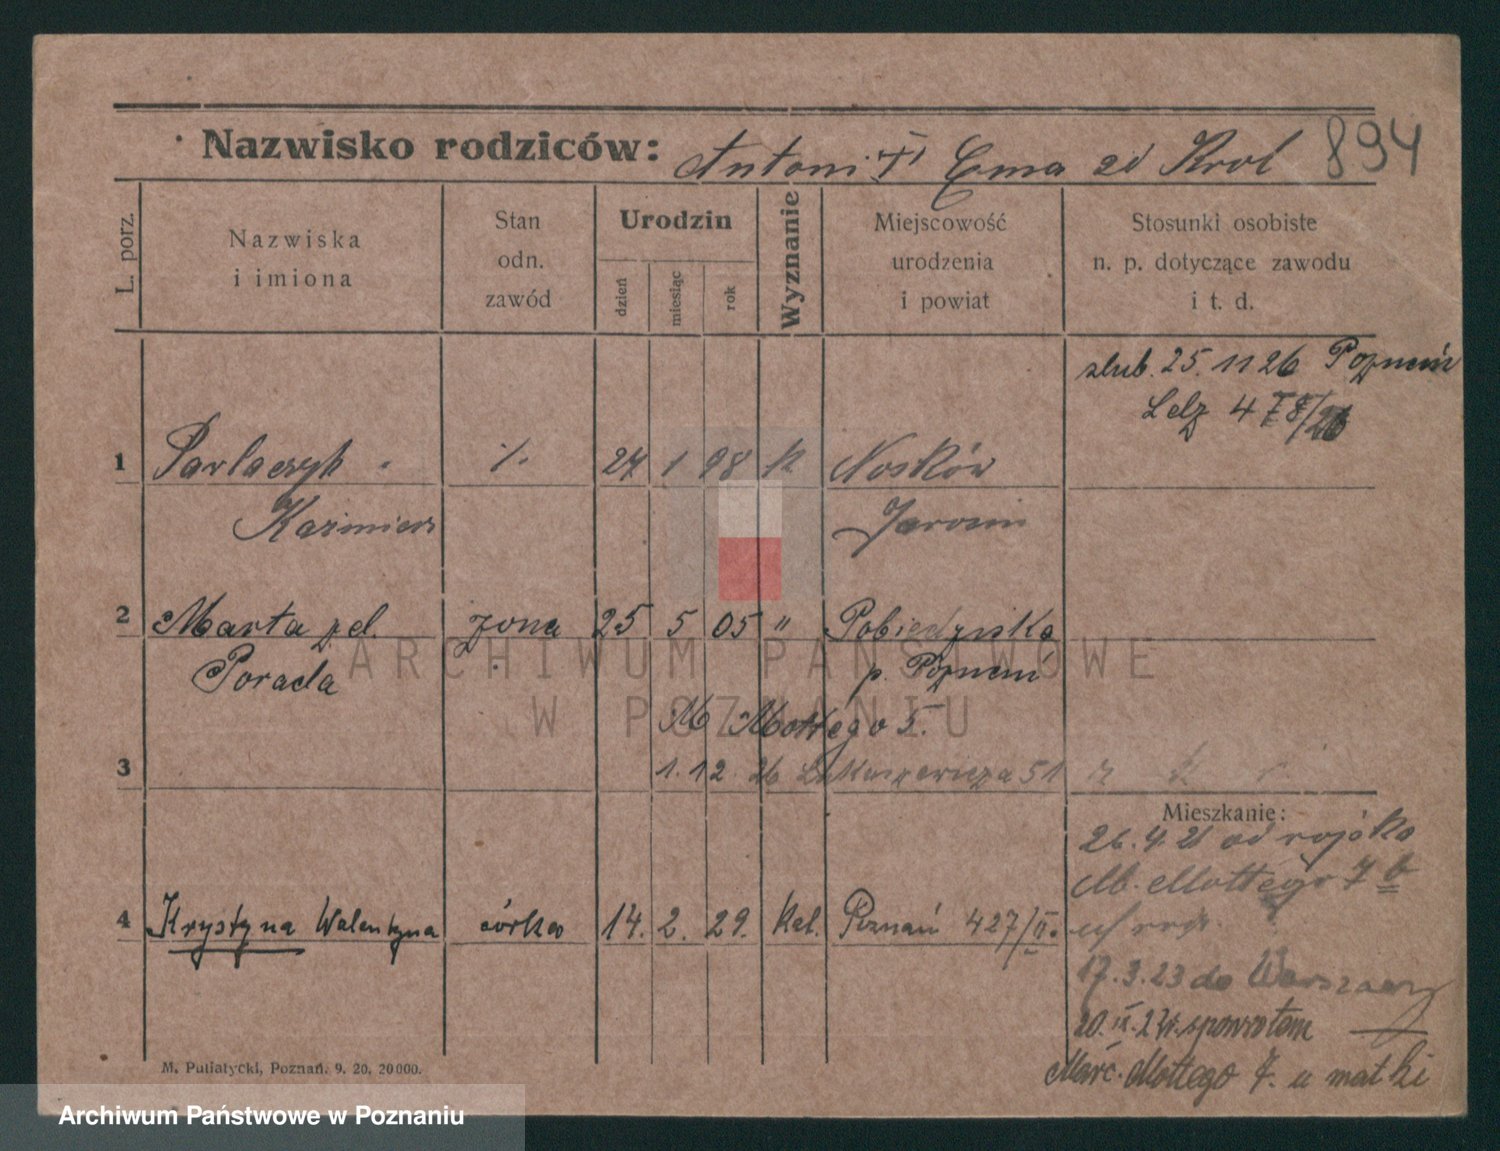 Nazwisko rodziców: Antoni Ema zd Krol 894
L. porz.
Nazwiska
i imiona
Stan
odn.
zawód
Urodzin
dzień
miesiąc
rok
Wyznanie
Miejscowość
urodzenia
i powiat
Stosunki osobiste
n. p. dotyczące zawodu
i t. d.
slub. 25. 11 26 Poznań
1 Parlaczyk 27 1 98 k Nosków
Kazimierz Jarocin
2 Marta zd. żona 25 5 05 " Pobiedziska
Porada p. Poznań
M Mottego 5.
3 1. 12. 26 Łukaszewicza 51
Mieszkanie:
26. 4. 21 od
M. Mottego 7
4 Krystyna Walentyna córka 14. 2. 29. kat. Poznań 427/II.
17. 3. 23 do Warszawy
20. IX. 24. spowrotem
Marc. Mottego 7. u matki
M. Putiatycki, Poznań. 9. 20. 20000.
ARCHIWUM PAŃSTWOWE
W POZNANIU
Archiwum Państwowe w Poznaniu